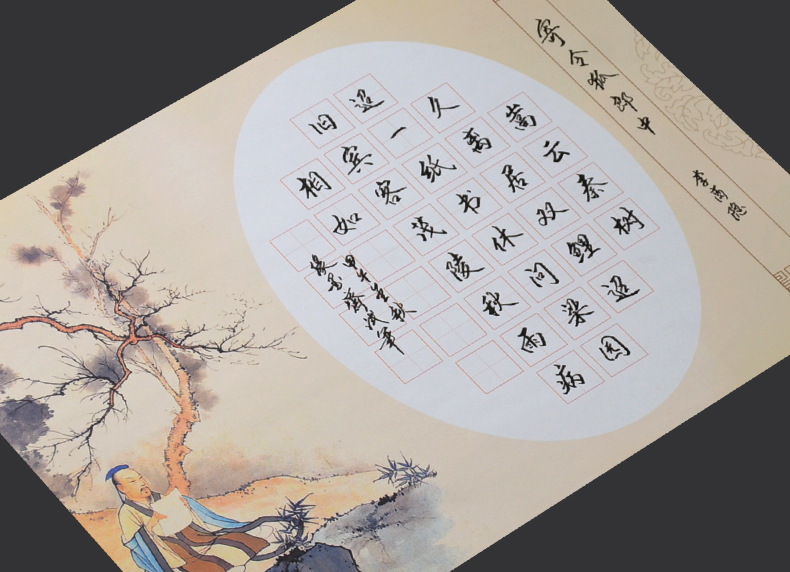 寄令狐郎中
李商隐
嵩云秦树
久离居双鲤迢
迢一纸书休问梁园
旧宾客茂陵秋雨病
相如
甲午秋